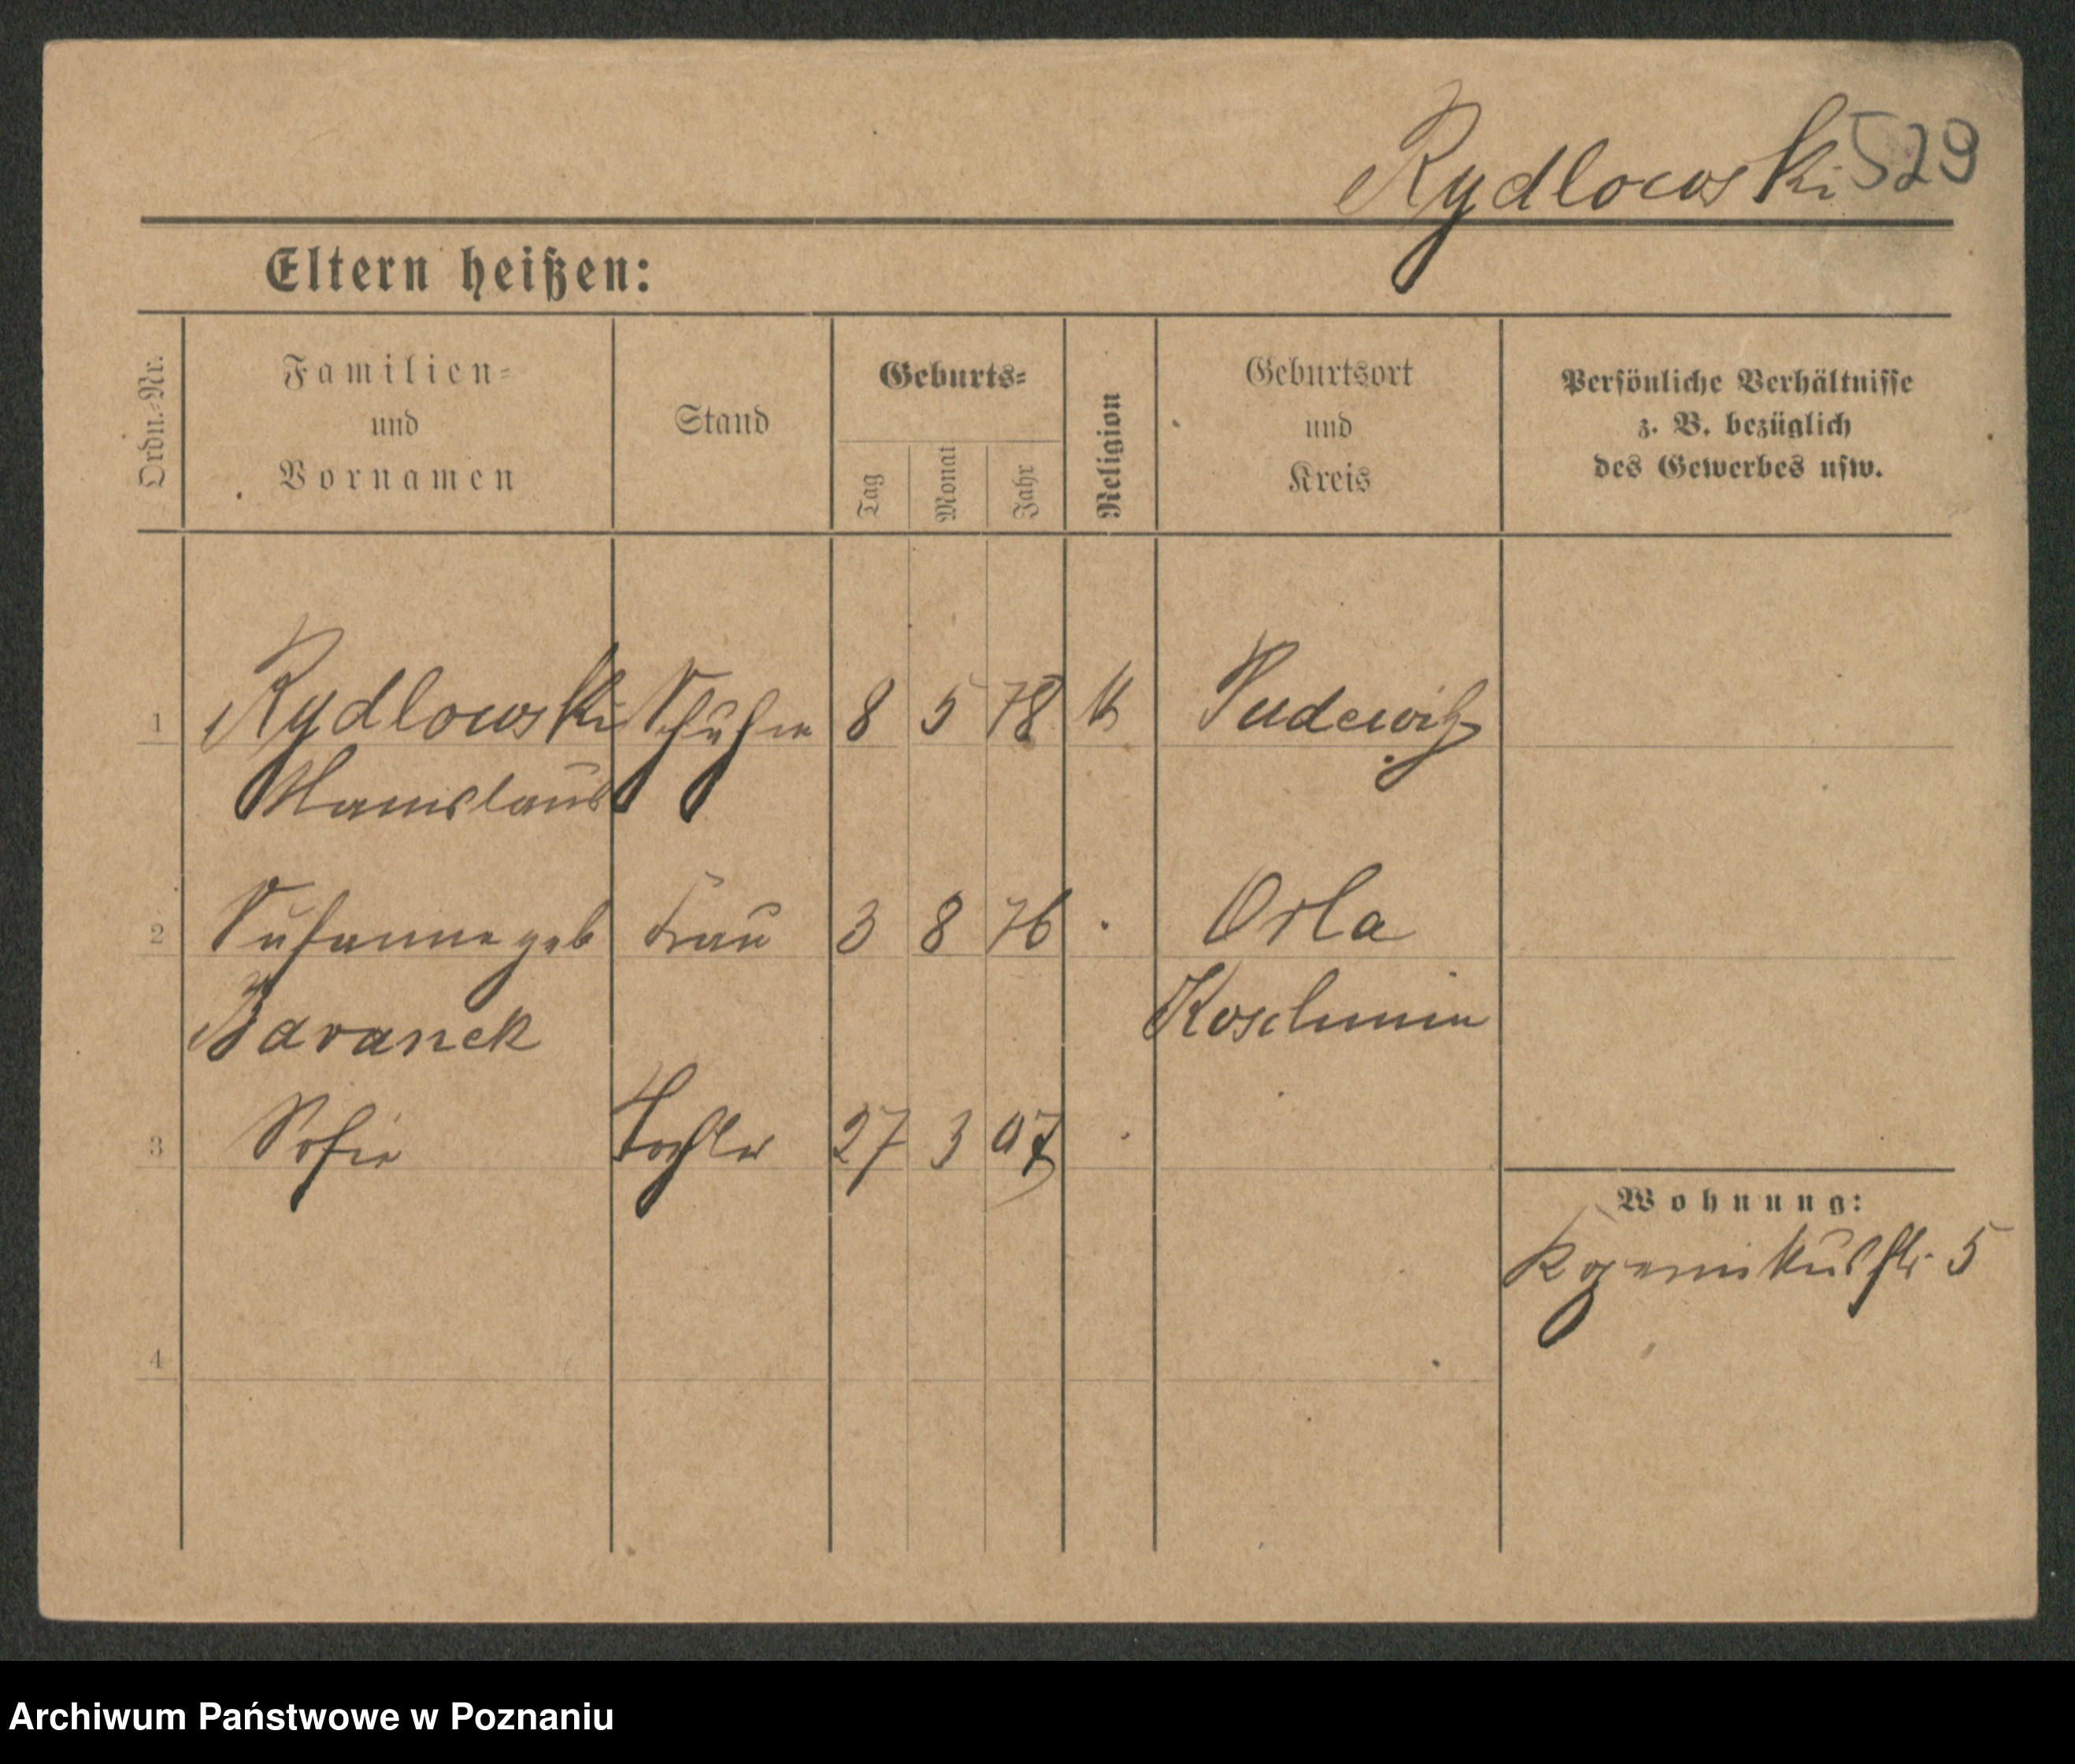 Rydlowski 529
Eltern heißen:
Ordn.-Nr.
Familien-
und
Vornamen
Stand
Geburts-
Tag
Monat
Jahr
Religion
Geburtsort
und
Kreis
Persönliche Verhältnisse
z. B. bezüglich
des Gewerbes usw.
1 Rydlowski 8 5 78 k Pudewitz
2 Susanne geb Frau 3 8 76 . Orla
Baranek Koschmin
3 Sofie Tochter 27 3 07 .
Wohnung:
5
4
Archiwum Państwowe w Poznaniu